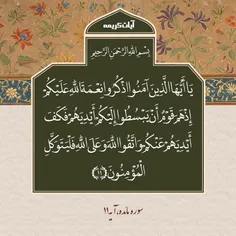 آیات کریمه
بِسْمِ اللَّهِ الرَّحْمَنِ الرَّحِيمِ
يَا أَيُّهَا الَّذِينَ آمَنُوا اذْكُرُوا نِعْمَةَ اللَّهِ عَلَيْكُمْ
إِذْ هَمَّ قَوْمٌ أَنْ يَبْسُطُوا إِلَيْكُمْ أَيْدِيَهُمْ فَكَفَّ
أَيْدِيَهُمْ عَنْكُمْ وَاتَّقُوا اللَّهَ وَعَلَى اللَّهِ فَلْيَتَوَكَّلِ
الْمُؤْمِنُونَ ﴿۱۱﴾
سوره مائده، آیه ۱۱